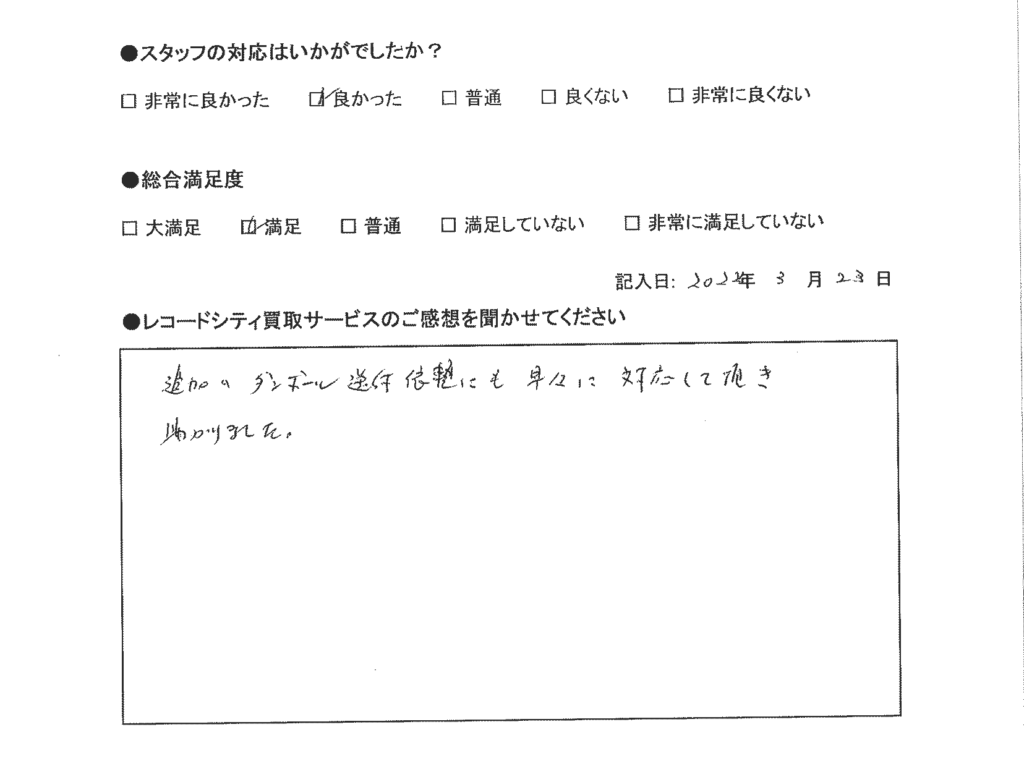 ●スタッフの対応はいかがでしたか？
□ 非常に良かった ☑ 良かった □ 普通 □ 良くない □ 非常に良くない
●総合満足度
□ 大満足 ☑ 満足 □ 普通 □ 満足していない □ 非常に満足していない
記入日: 202年 3 月 23 日
●レコードシティ買取サービスのご感想を聞かせてください
追加の ダンボール 送付 依頼にも 早々に 対応して頂き
助かりました。